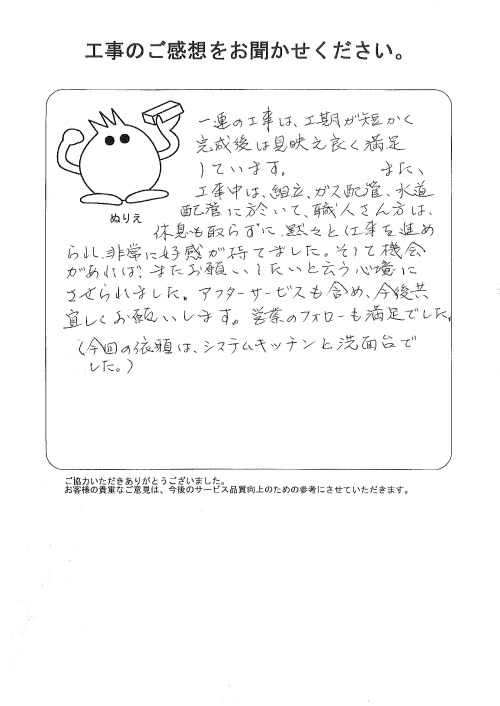 工事のご感想をお聞かせください。
一連の工事は、工期が短かく
完成後は見映え良く満足
しています。 また、
工事中は、組立、ガス配管、水道
配管に於いて、職人さん方は、
休息も取らずに、黙々と仕事を進め
られ、非常に好感が持てました。そして機会
があれば、またお願いしたいと云う心境に
させられました。アフターサービスも含め、今後共
宜しくお願いします。営業のフォローも満足でした。
(今回の依頼は、システムキッチンと洗面台で
した。)
ぬりえ
ご協力いただきありがとうございました。
お客様の貴重なご意見は、今後のサービス品質向上のための参考にさせていただきます。